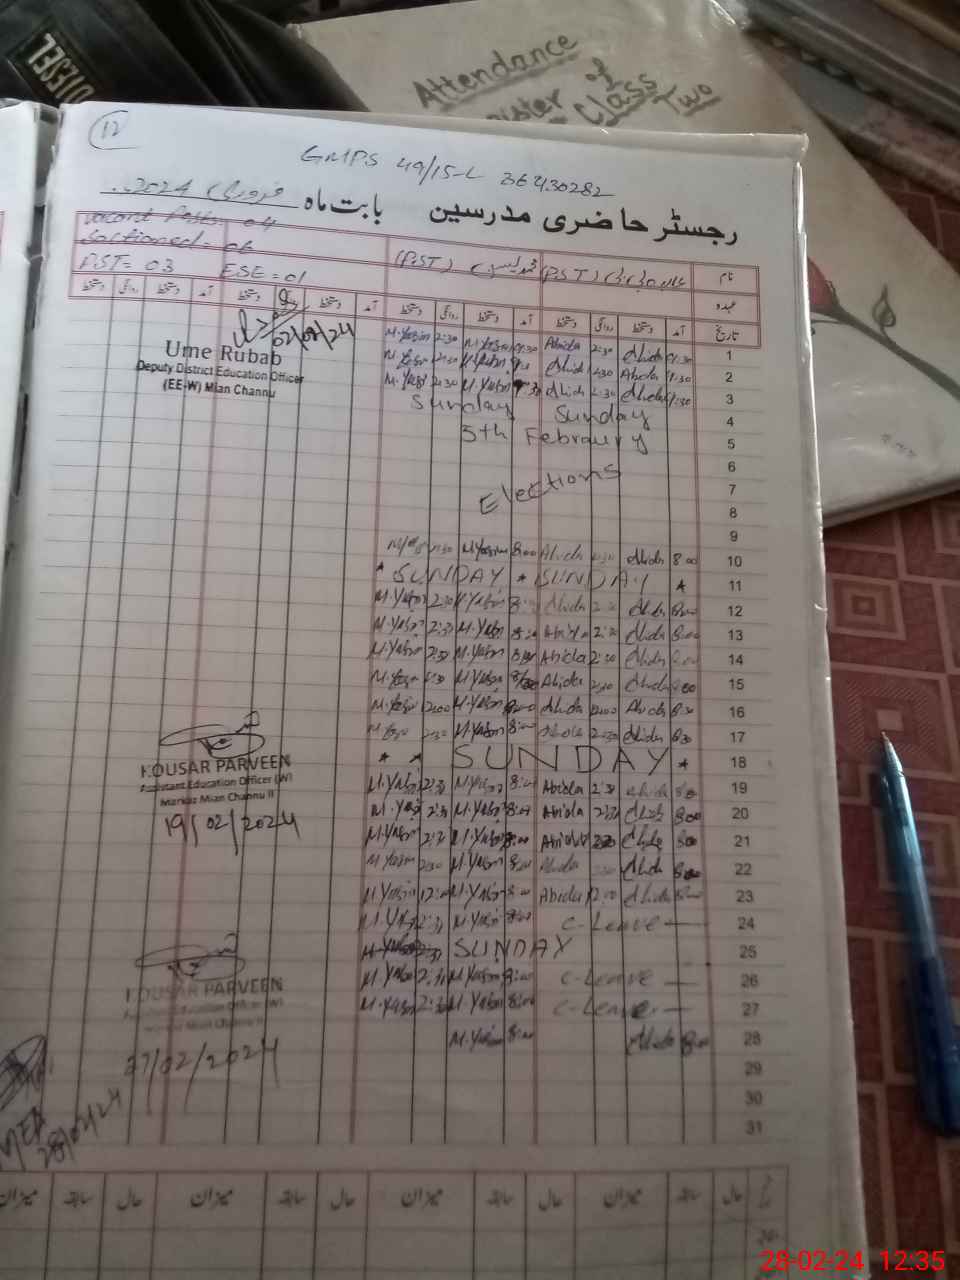 DIESEL
Attendance
Register of
Class Two
12
GMPS 49/15-L 36430282
رجسٹر حاضری مدرسین بابت ماہ فروری 2024
Vacant Posts: 04
Sactioned- 06
PST= 03 ESE=01
نام (PST) (PST)
عہدہ
تاریخ آمد دستخط روانگی دستخط آمد دستخط روانگی دستخط آمد دستخط دستخط آمد دستخط روانگی دستخط
02/02/24
Ume Rubab
Deputy District Education Officer
(EE-W) Mian Channu
M.Yasin 2:30 M.Yasin 9:30 Abida 2:30 Abida 9:30 1
M.Yasin 2:30 M.Yasin Abida 2:30 Abida 9:30 2
M.Yasin 2:30 M.Yasin 9:30 Abida 2:30 Abida 9:30 3
Sunday Sunday 4
5th Febraury 5
6
Elections 7
8
9
2:30 M.Yasin 8:00 Abida 2:30 Abida 8:00 10
* SUNDAY * SUNDAY * 11
M.Yasin 2:30 M.Yasin Abida 2:30 Abida 8:00 12
M.Yasin 2:30 M.Yasin Abida 2:30 Abida 8:00 13
M.Yasin 2:30 M.Yasin Abida 2:30 Abida 8:00 14
M.Yasin 2:30 M.Yasin 8:00 Abida 2:30 Abida 8:00 15
M.Yasin 12:00 M.Yasin 8:00 Abida 12:00 Abida 8:30 16
M.Yasin 2:30 M.Yasin 8:00 Abida 2:30 Abida 8:30 17
* * SUNDAY * 18
M.Yasin 2:30 M.Yasin 8:00 Abida 2:30 Abida 8:00 19
M.Yasin 2:30 M.Yasin 8:00 Abida 2:30 Abida 8:00 20
M.Yasin 2:30 M.Yasin 8:00 Abida 2:30 Abida 8:00 21
M.Yasin 2:30 M.Yasin 8:00 Abida Abida 8:00 22
M.Yasin 12:00 M.Yasin 8:00 Abida 12:00 Abida 8:00 23
M.Yasin 2:30 M.Yasin 8:00 C-Leave 24
SUNDAY 25
M.Yasin 2:30 M.Yasin 8:00 C-Leave 26
M.Yasin 2:30 M.Yasin 8:00 C-Leave 27
M.Yasin 8:00 Abida 8:00 28
29
30
31
KOUSAR PARVEEN
Assistant Education Officer (W)
Markaz Mian Channu II
19/02/2024
KOUSAR PARVEEN
Assistant Education Officer (W)
Markaz Mian Channu II
27/02/2024
MEA
28/02/24
حال سابقہ میزان حال سابقہ میزان حال سابقہ میزان حال سابقہ میزان
28-02-24 12:35